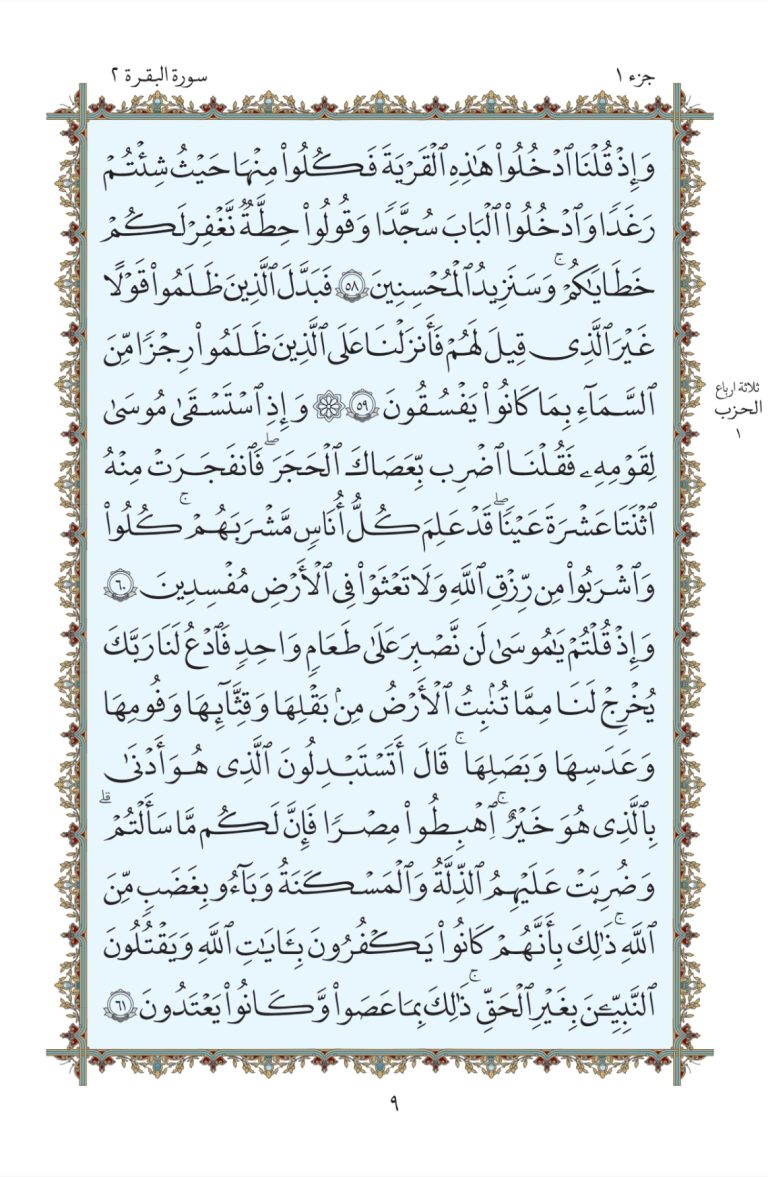 جزء ١
سورة البقرة ٢
وَإِذۡ قُلۡنَا ٱدۡخُلُواْ هَٰذِهِ ٱلۡقَرۡيَةَ فَكُلُواْ مِنۡهَا حَيۡثُ شِئۡتُمۡ
رَغَدٗا وَٱدۡخُلُواْ ٱلۡبَابَ سُجَّدٗا وَقُولُواْ حِطَّةٞ نَّغۡفِرۡ لَكُمۡ
خَطَٰيَٰكُمۡۚ وَسَنَزِيدُ ٱلۡمُحۡسِنِينَ ٥٨ فَبَدَّلَ ٱلَّذِينَ ظَلَمُواْ قَوۡلًا
غَيۡرَ ٱلَّذِي قِيلَ لَهُمۡ فَأَنزَلۡنَا عَلَى ٱلَّذِينَ ظَلَمُواْ رِجۡزٗا مِّنَ
ٱلسَّمَآءِ بِمَا كَانُواْ يَفۡسُقُونَ ٥٩ ۞ وَإِذِ ٱسۡتَسۡقَىٰ مُوسَىٰ
لِقَوۡمِهِۦ فَقُلۡنَا ٱضۡرِب بِّعَصَاكَ ٱلۡحَجَرَۖ فَٱنفَجَرَتۡ مِنۡهُ
ٱثۡنَتَا عَشۡرَةَ عَيۡنٗاۖ قَدۡ عَلِمَ كُلُّ أُنَاسٖ مَّشۡرَبَهُمۡۚ كُلُواْ
وَٱشۡرَبُواْ مِن رِّزۡقِ ٱللَّهِ وَلَا تَعۡثَوۡاْ فِي ٱلۡأَرۡضِ مُفۡسِدِينَ ٦٠
وَإِذۡ قُلۡتُمۡ يَٰمُوسَىٰ لَن نَّصۡبِرَ عَلَىٰ طَعَامٖ وَٰحِدٖ فَٱدۡعُ لَنَا رَبَّكَ
يُخۡرِجۡ لَنَا مِمَّا تُنۢبِتُ ٱلۡأَرۡضُ مِنۢ بَقۡلِهَا وَقِثَّآئِهَا وَفُومِهَا
وَعَدَسِهَا وَبَصَلِهَاۚ قَالَ أَتَسۡتَبۡدِلُونَ ٱلَّذِي هُوَ أَدۡنَىٰ
بِٱلَّذِي هُوَ خَيۡرٌۚ ٱهۡبِطُواْ مِصۡرٗا فَإِنَّ لَكُم مَّا سَأَلۡتُمۡۗ
وَضُرِبَتۡ عَلَيۡهِمُ ٱلذِّلَّةُ وَٱلۡمَسۡكَنَةُ وَبَآءُو بِغَضَبٖ مِّنَ
ٱللَّهِۚ ذَٰلِكَ بِأَنَّهُمۡ كَانُواْ يَكۡفُرُونَ بِـَٔايَٰتِ ٱللَّهِ وَيَقۡتُلُونَ
ٱلنَّبِيِّـۧنَ بِغَيۡرِ ٱلۡحَقِّۚ ذَٰلِكَ بِمَا عَصَواْ وَّكَانُواْ يَعۡتَدُونَ ٦١
ثلاثة ارباع
الحزب
١
٩